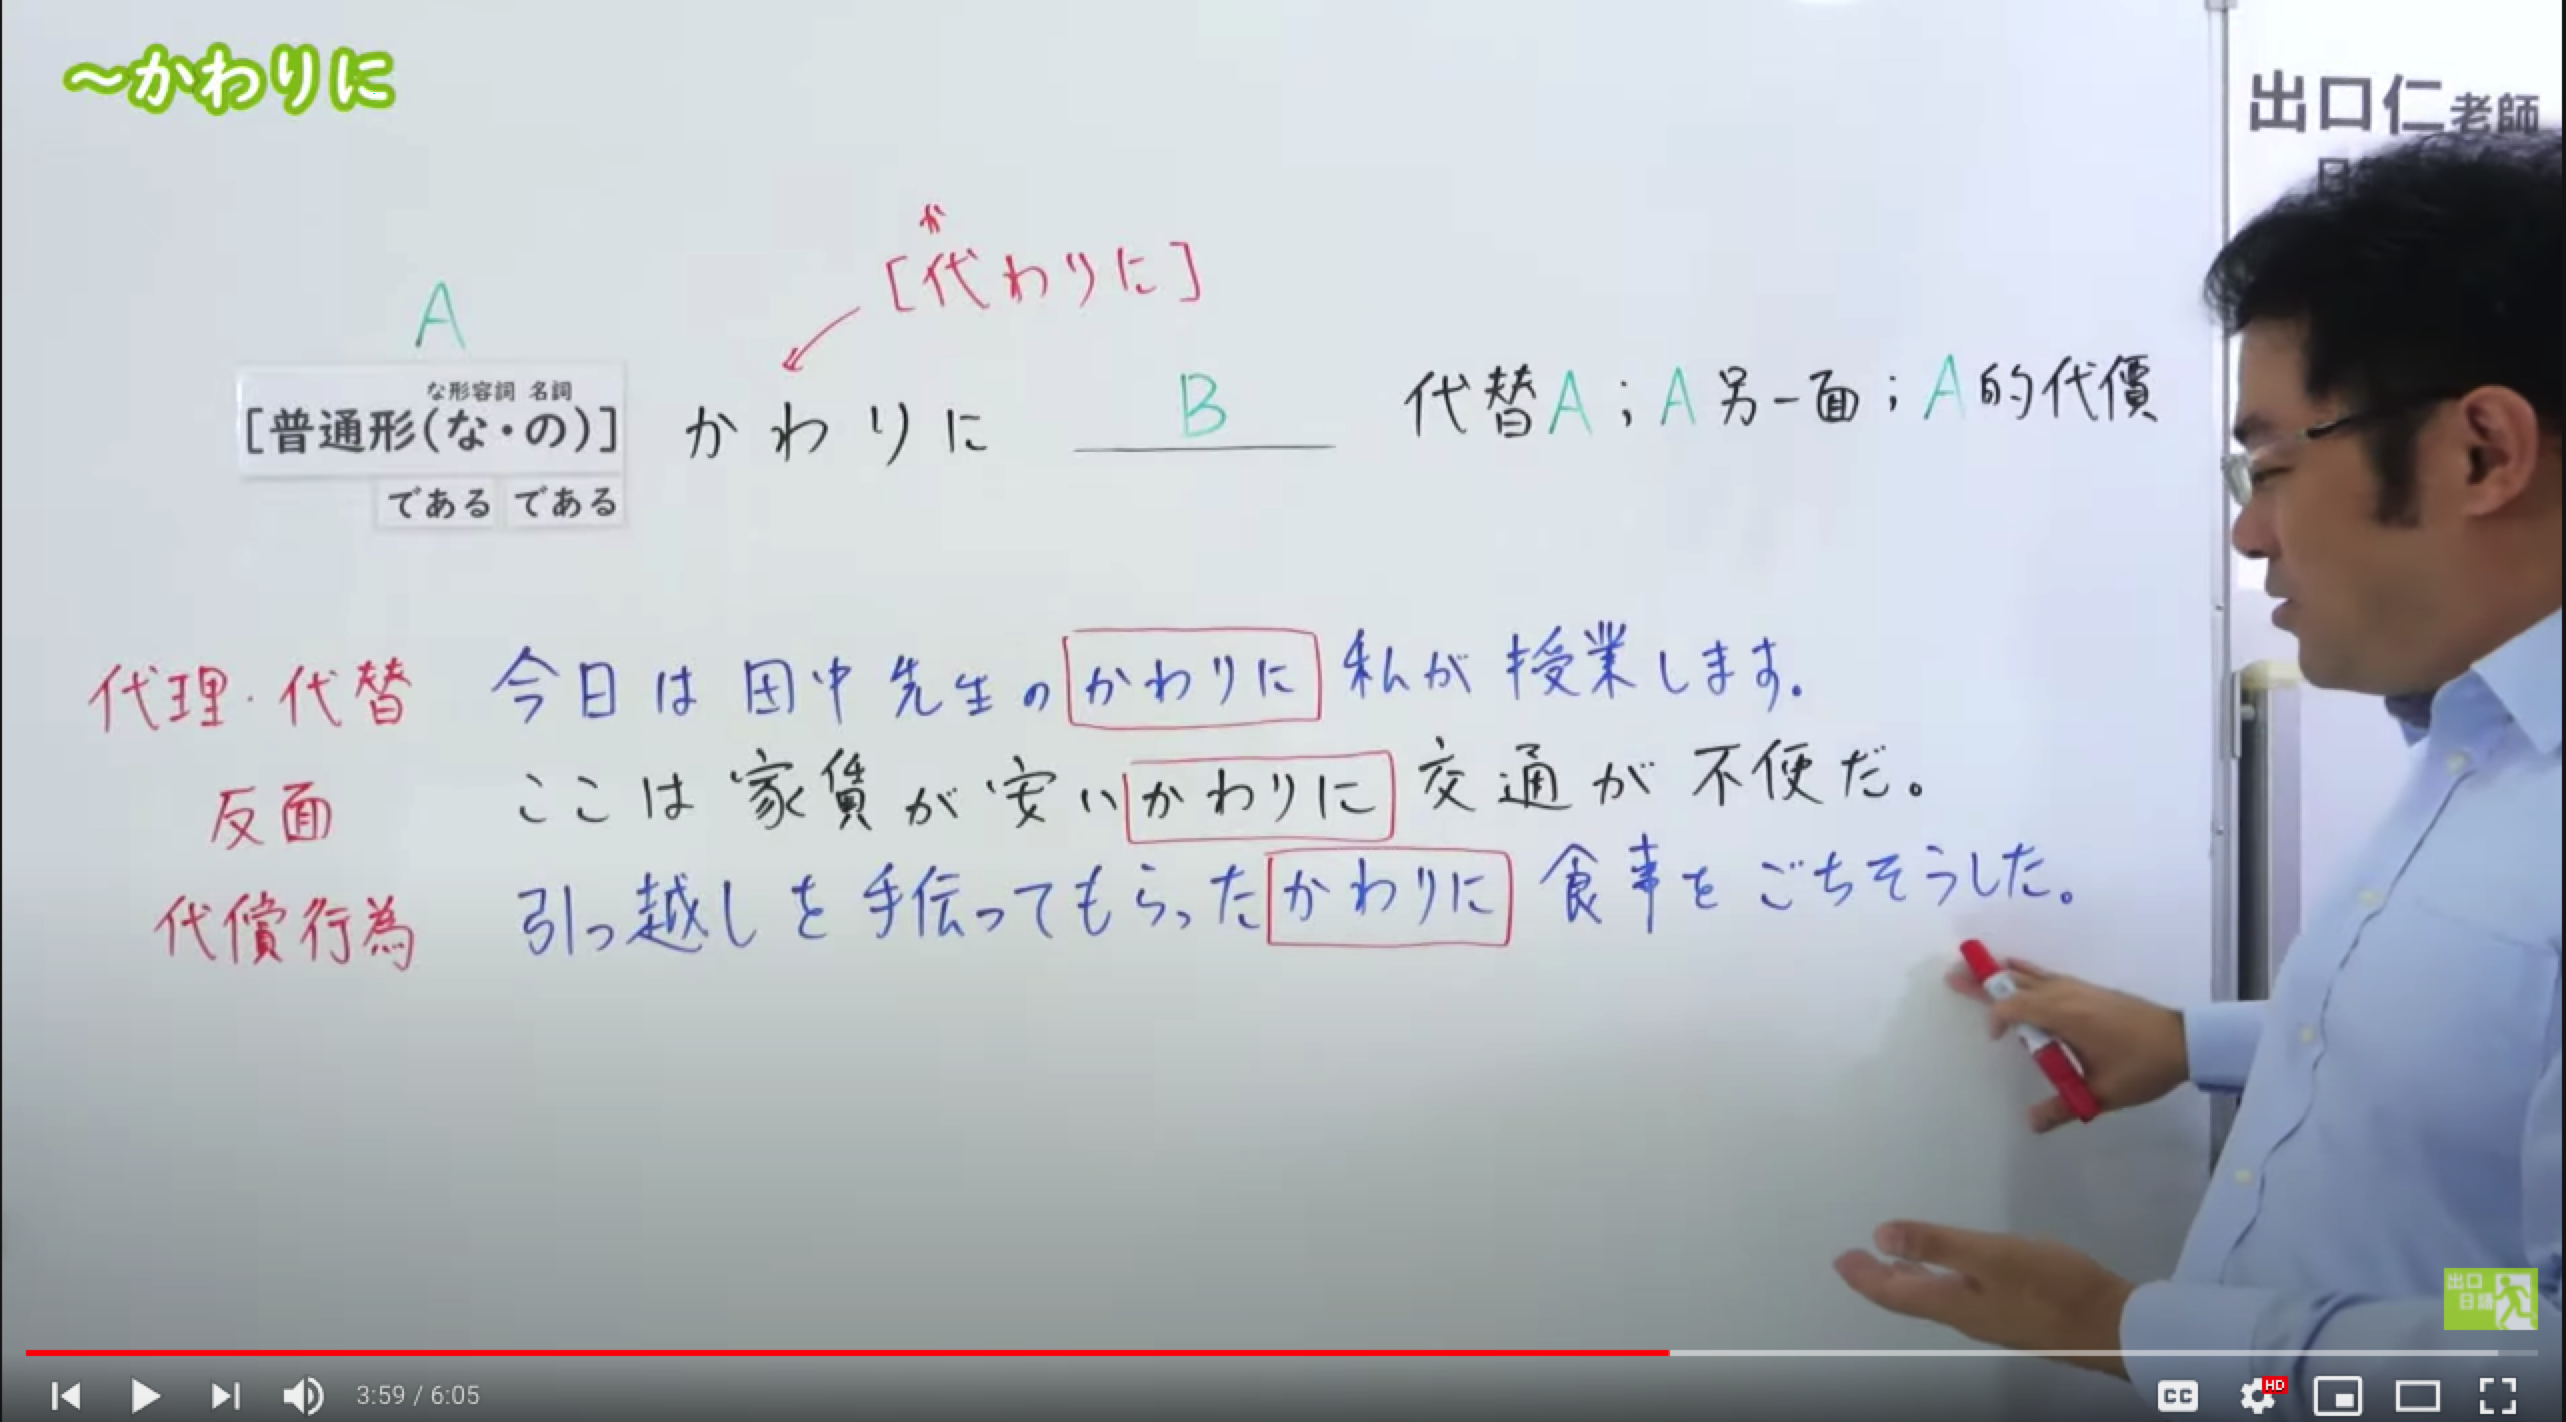 ～かわりに
出口仁老師
か
[代わりに]
A
な形容詞 名詞
[普通形(な・の)] かわりに B 代替A；A另一面；A的代價
である である
代理・代替 今日は田中先生のかわりに私が授業します。
反面 ここは家賃が安いかわりに交通が不便だ。
代償行為 引っ越しを手伝ってもらったかわりに食事をごちそうした。
出口
日語
3:59 / 6:05
CC
HD